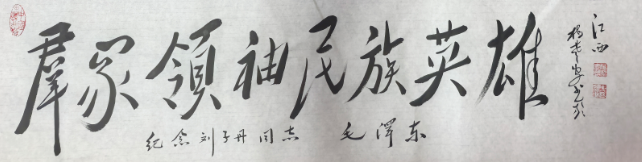 羣众領袖民族英雄
纪念刘子丹同志 毛泽东
江西